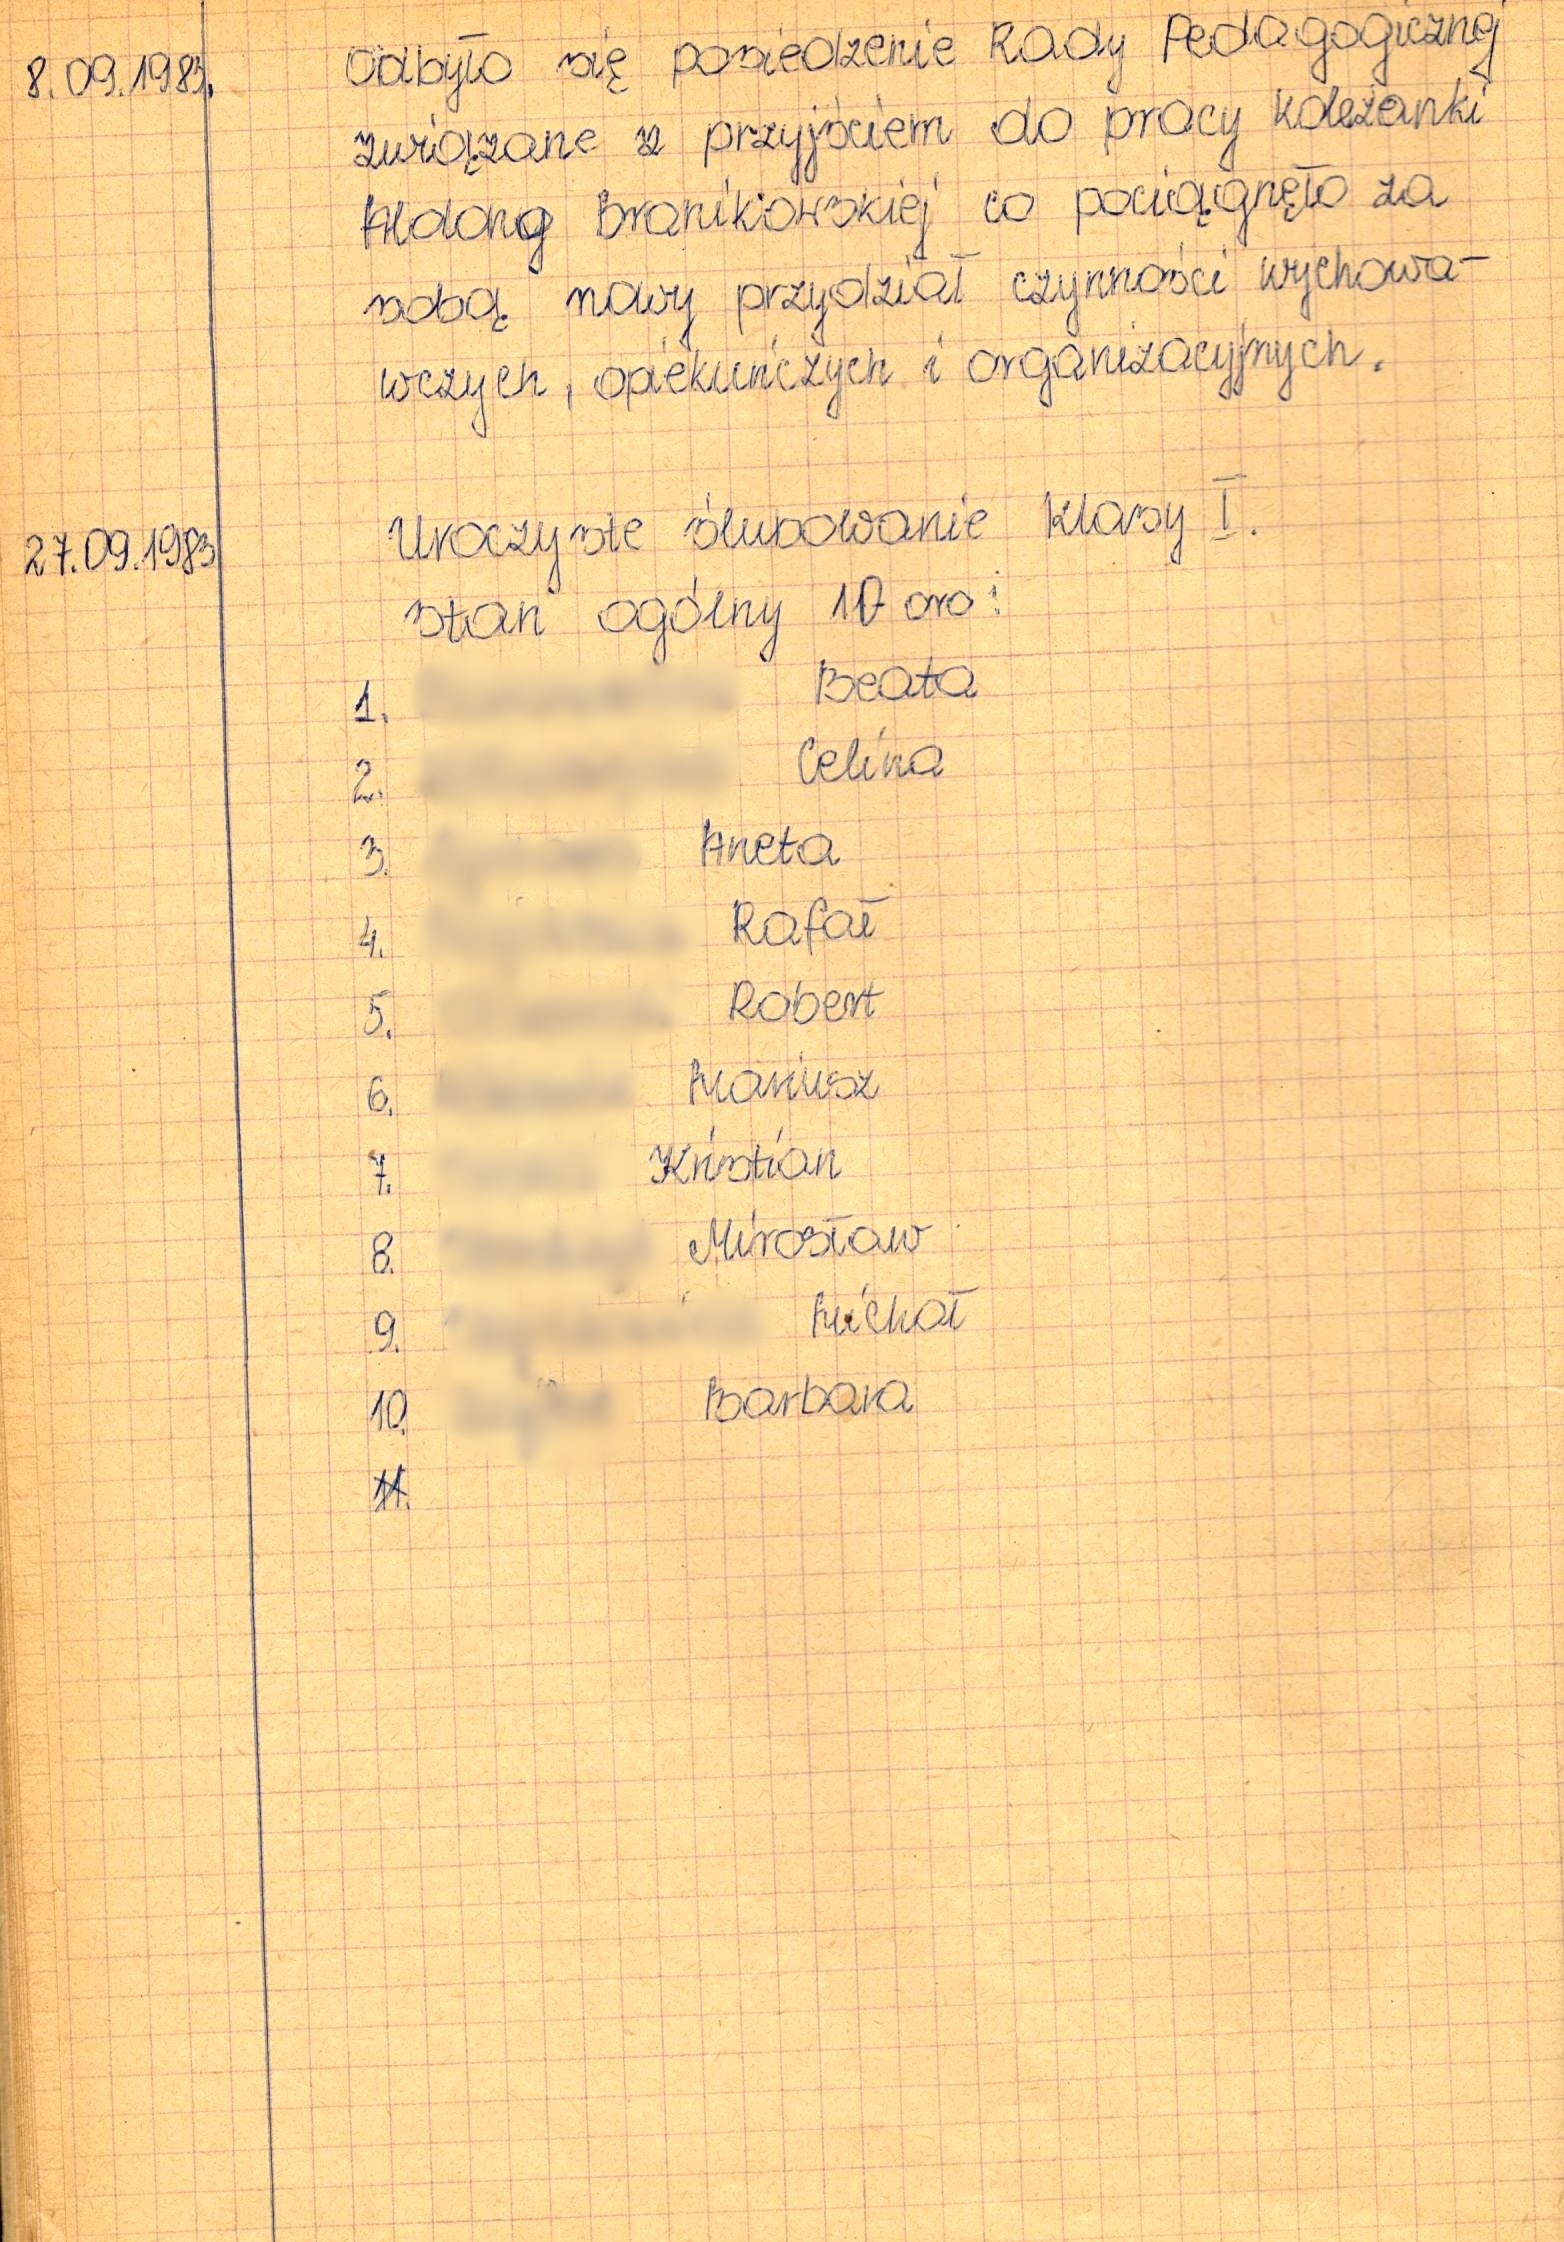 8.09.1983. Odbyło się posiedzenie Rady Pedagogicznej
związane z przyjściem do pracy koleżanki
Bronikowskiej co pociągnęło za
sobą nowy przydział czynności wychowa-
wczych, opiekuńczych i organizacyjnych.
27.09.1983 Uroczyste ślubowanie klasy I.
stan ogólny 10 oro:
1. Beata
2. Celina
3. Aneta
4. Rafał
5. Robert
6. Mariusz
7. Kristian
8. Mirosław
9. Michał
10. Barbara
11.